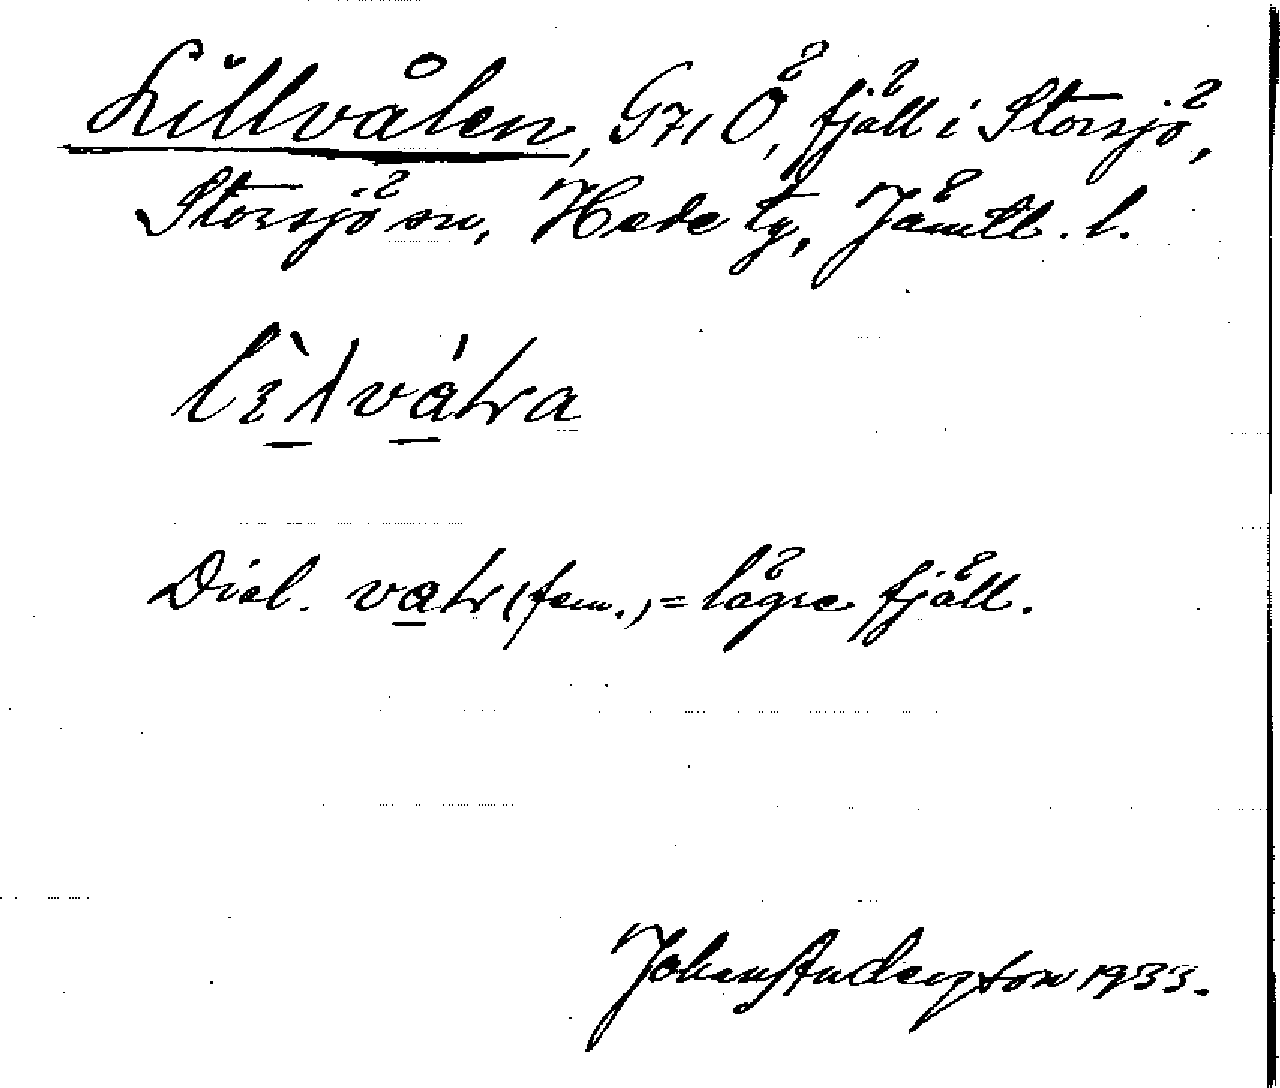 Lillvålen, G71 Ö, fjäll i Storsjö,
Storsjö sn, Hede tg, Jämtl. l.
Dial. (fem.) = lägre fjäll.
Johan Andersson 1933.